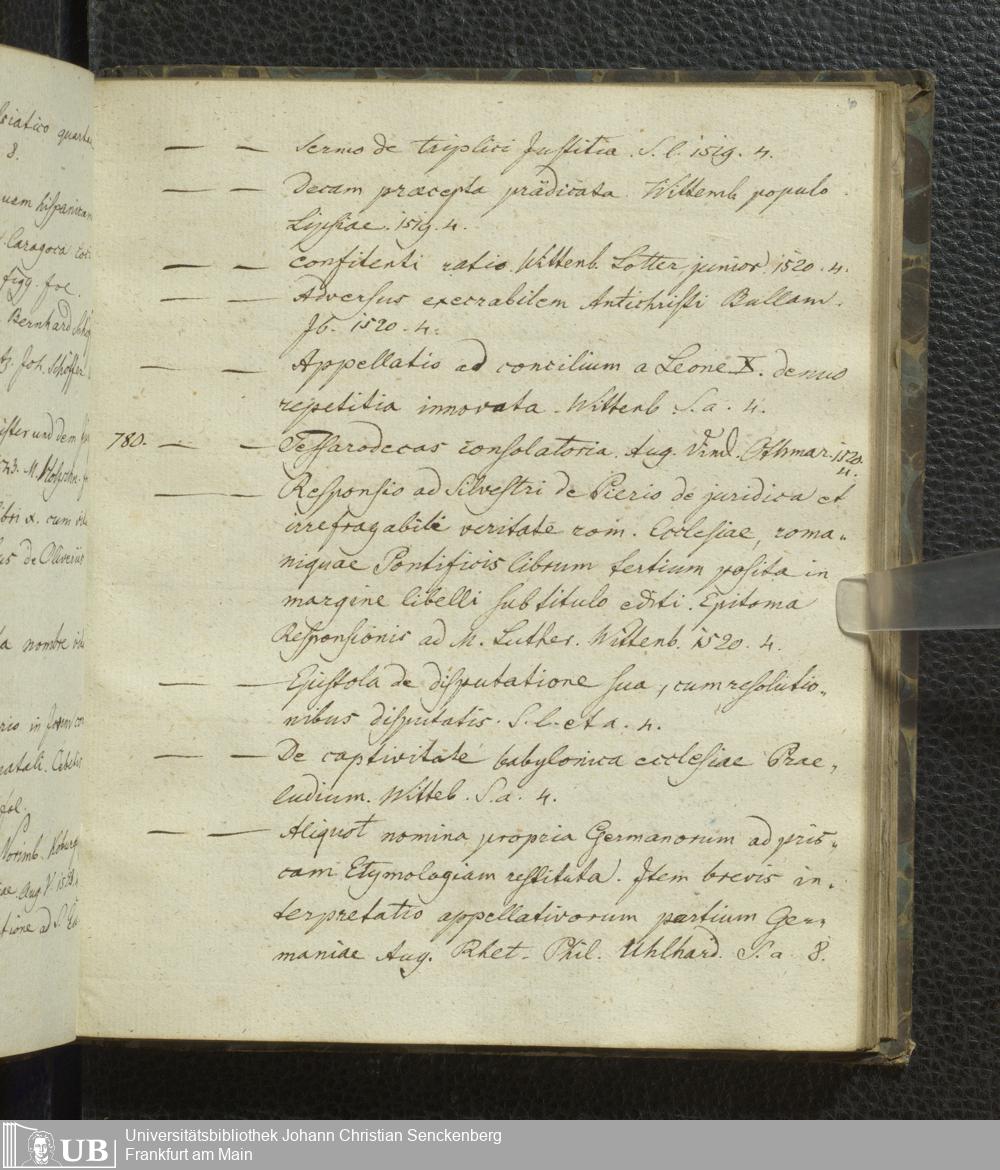 siatico quart
8.
uem hispanican
Caragoca
Figg. fol.
Bernhard
Joh. Schöffer
ister und dem
M.
ibri x. cum
us de Oliveriis
a nombre
rio in
natali. Cebetis
fol.
Norimb. Koburg
ae Aug V. 1523.
tione ad S.
6
— — Sermo de triplici Justitia. S. l. 1519. 4.
— — Decam præcepta prädicata Wittemb. populo
Lipsiae. 1519. 4.
— — confitendi ratio. Wittenb. Lotter junior. 1520. 4.
— — Adversus execrabilem Antichristi Bullam.
Ib. 1520. 4.
— — Appellatio ad concilium a Leone X. denuo
repetitia innovata. Wittenb. S. a. 4.
780. — — Tessarodecas consolatoria. Aug. Vind. Othmar. 1520.
4.
— — Responsio ad Silvestri de Pierio de juridica et
irrefragabile veritate rom. Ecclesiae, roma„
niquae Pontificis librum tertium posita in
margine libelli sub titulo editi. Epitoma
Responsionis ad M. Luther. Wittenb. 1520. 4.
— — Epistola de disputatione sua, cum resolutio„
nibus disputatis. S. l. et a. 4.
— — De captivitate babylonica ecclesiae Prae„
ludium. Witteb. S. a. 4.
— — Aliquot nomina propria Germanorum ad pris„
cam Etymologiam restituta. Item brevis in„
terpretatio appellativorum partium Ger„
maniae Aug. Rhet. Phil. Uhlhard. S. a. 8.
UB
Universitätsbibliothek Johann Christian Senckenberg
Frankfurt am Main